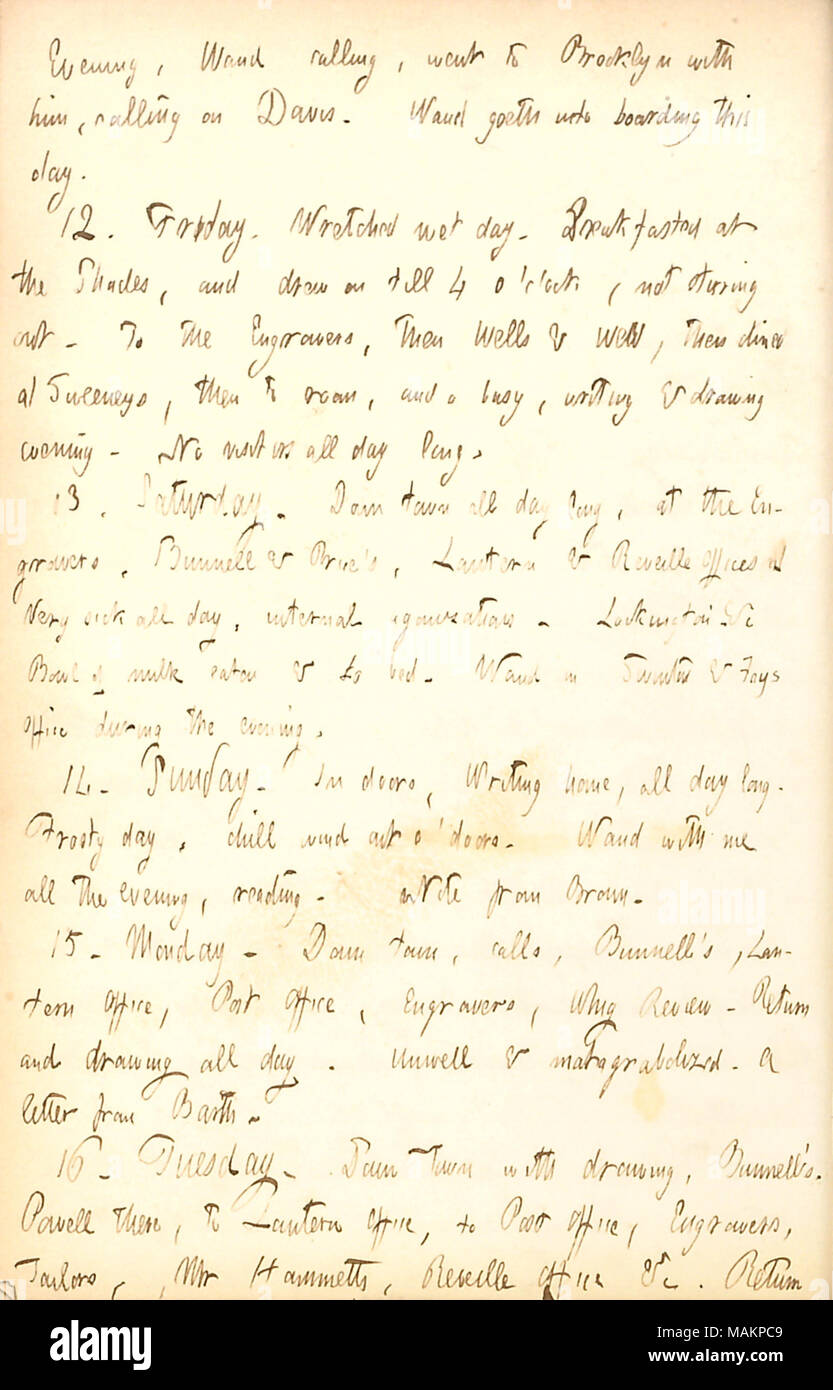 Evening, Waud calling, went to Brooklyn with
him, calling on Davis. Waud goeth into boarding this
day.
12. Friday. Wretched wet day. Breakfasted at
the Shades, and drew on till 4 o'clock, not stirring
out. To the Engravers, then Wells & Webb, then dined
at Sweeneys, then to room, and a busy, writing & drawing
evening. No visitors all day long.
13. Saturday. Down town all day long, at the En-
gravers, Bunnell & Price's, Lantern & Reveille offices
Very sick all day, internal agonizations. Lockington &c
Bowl of milk eaten & to bed. Waud in & Fays
office during the evening.
14. Sunday. In doors, writing home, all day long.
Frosty day, chill wind out o'doors. Waud with me
all the evening, reading. a Note from Brown.
15. Monday. Down town, calls, Bunnell's, Lan-
tern Office, Post Office, Engravers, Whig Review. Return
and drawing all day. Unwell & matagrabolized. A
letter from Barth.
16. Tuesday. Down Town with drawing, Bunnell's.
Powell there, to Lantern Office, to Post Office, Engravers,
Tailors, Mr Hammetts, Reveille Office &c. Return
alamy
Image ID: MAKPC9
www.alamy.com